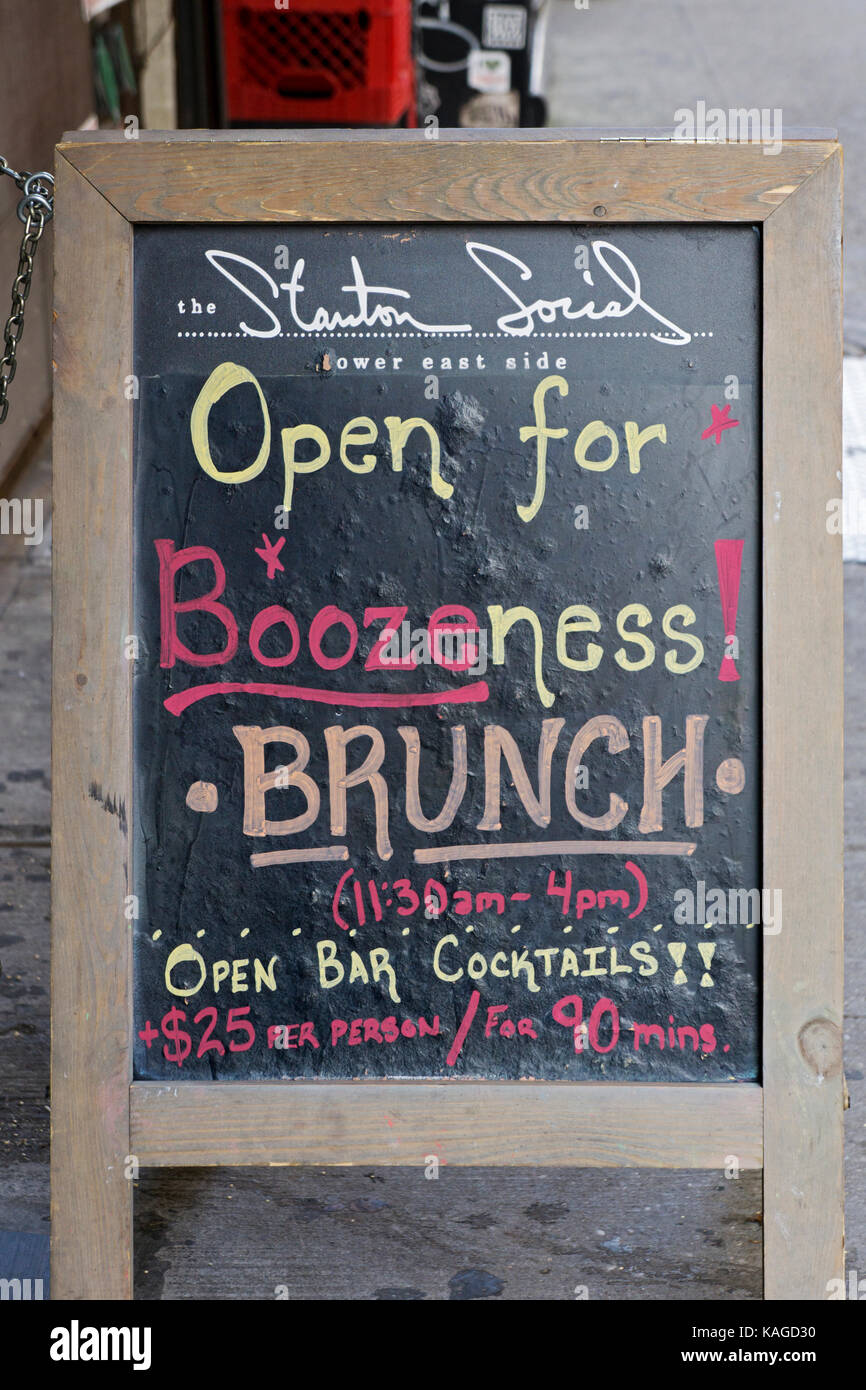 the Stanton Social
lower east side
Open for
Boozeness!
• BRUNCH •
(11:30am - 4pm)
OPEN BAR COCKTAILS!!
+$25 PER PERSON / FOR 90 mins.
alamy
Image ID: KAGD30
www.alamy.com